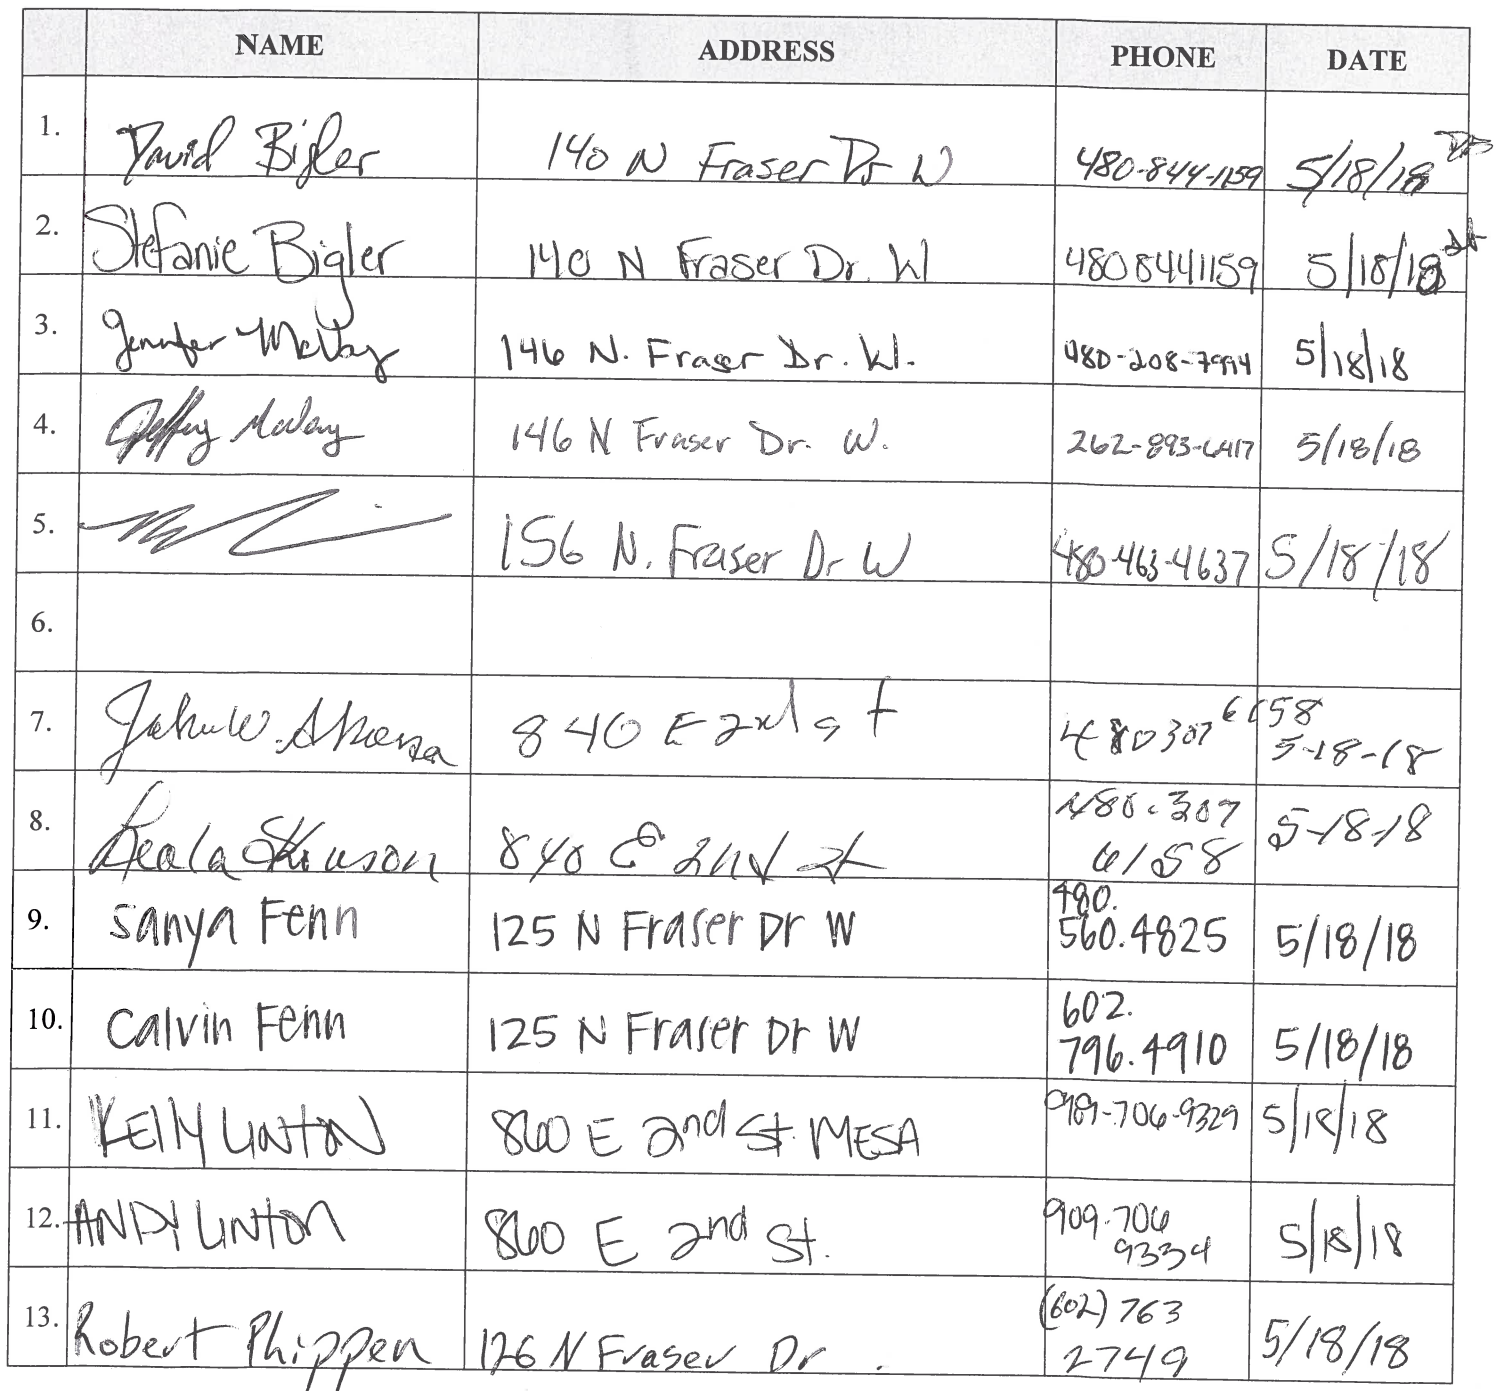 NAME ADDRESS PHONE DATE
1. David Bigler 140 N Fraser Dr W 480-844-1159 5/18/18 DB
2. Stefanie Bigler 140 N Fraser Dr. W 4808441159 5/18/18
3. Jennifer McVay 146 N. Fraser Dr. W. 480-208-7994 5/18/18
4. Jeffrey McVay 146 N Fraser Dr. W. 262-893-6417 5/18/18
5. 156 N. Fraser Dr W 480-463-4637 5/18/18
6.
7. 840 E 2nd st 480307 6158 5-18-18
8. 840 E 2nd st 480-307 6158 5-18-18
9. Sanya Fenn 125 N Fraser Dr W 480. 560.4825 5/18/18
10. Calvin Fenn 125 N Fraser Dr W 602. 796.4910 5/18/18
11. KELLY LINTON 860 E 2nd St. MESA 909-706-9329 5/18/18
12. ANDY LINTON 860 E 2nd St. 909-706 9334 5/18/18
13. Robert Phippen 126 N Fraser Dr. (602) 763 2749 5/18/18